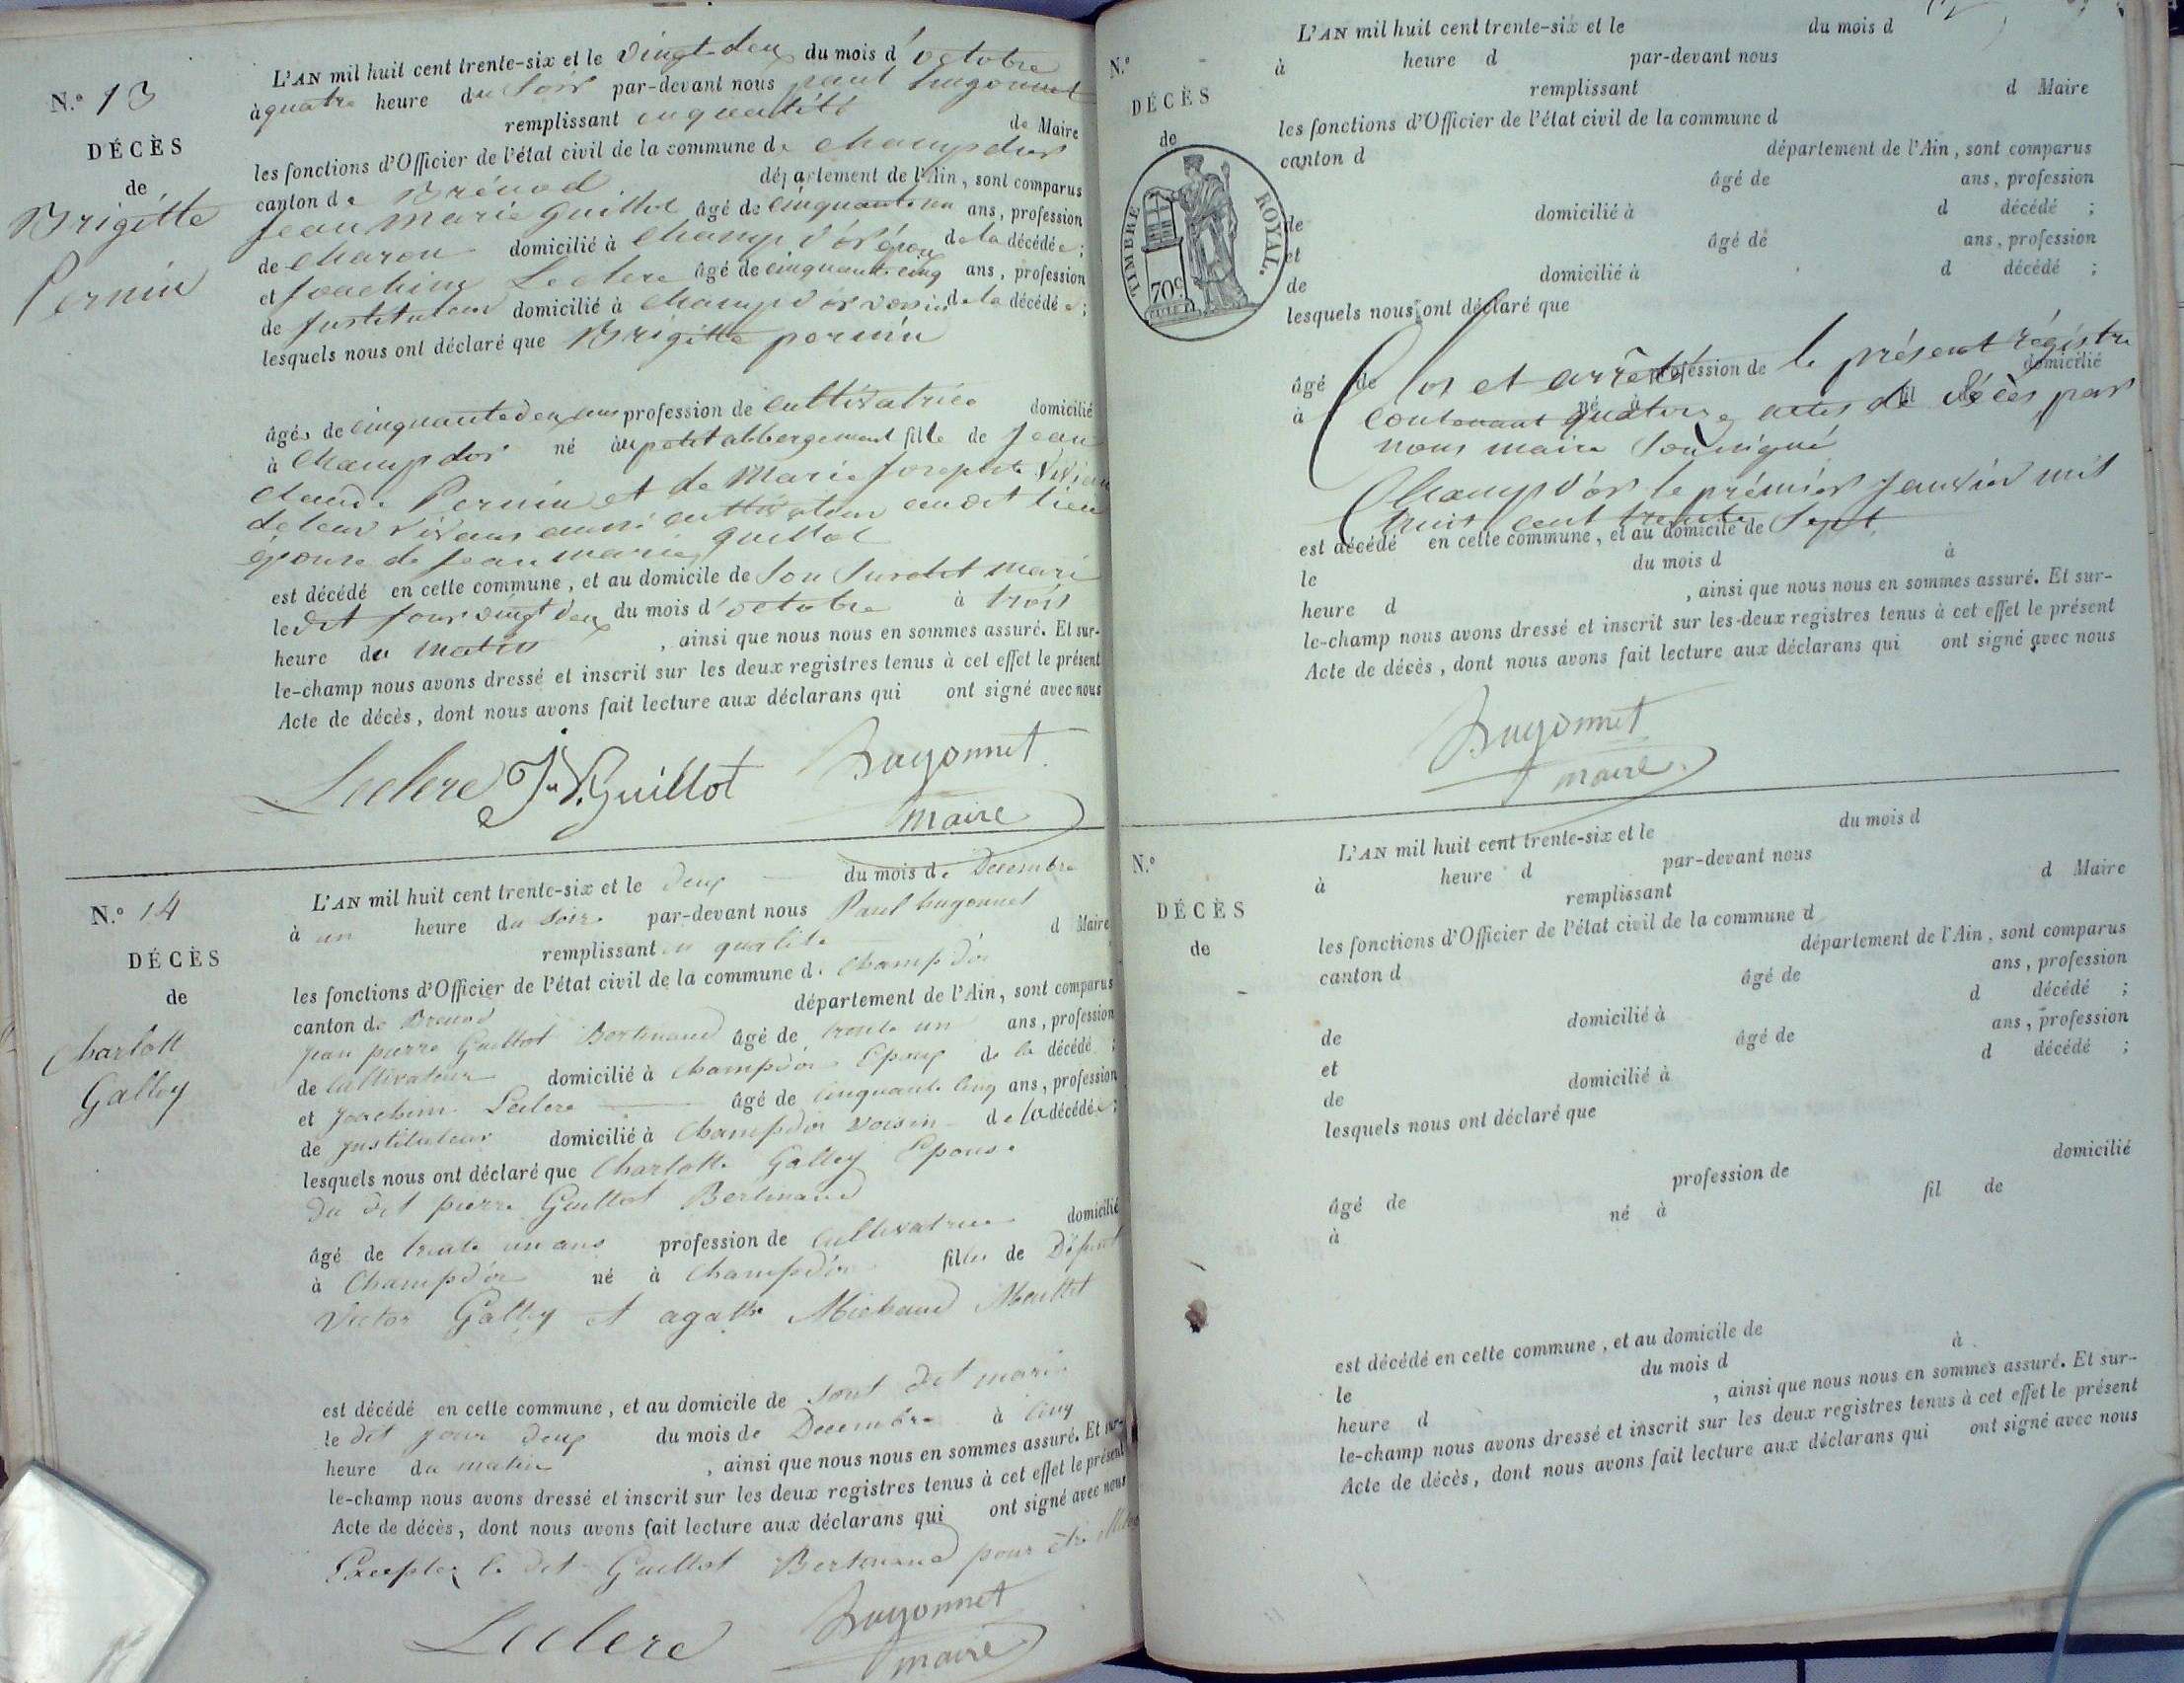 N.º 13
DÉCÈS
de
Brigitte
Pernin
L'AN mil huit cent trente-six et le vingt deux du mois d'octobre
à quatre heure du soir par-devant nous paul hugonnet
remplissant en qualité de Maire
les fonctions d'Officier de l'état civil de la commune de Champdor
canton de Brénod département de l'Ain, sont comparus
Jean marie Guillot âgé de cinquante un ans, profession
de charon domicilié à Champ d'or époux de la décédée;
et Joachim Leclere âgé de cinquante cinq ans, profession
de Instituteur domicilié à Champ d'or voisin de la décédée;
lesquels nous ont déclaré que Brigitte pernin
âgée de cinquante deux ans profession de cultivatrice domicilié
à Champ dor né au petit abbergement fille de Jean
claude Pernin et de Marie Josephte
de leur vivans aussi cultivateur audit lieu
épouse de Jean marie guillot
est décédé en cette commune, et au domicile de son susdit mari
le dit jour vingt deux du mois d'octobre à trois
heure du matin , ainsi que nous nous en sommes assuré. Et sur-
le-champ nous avons dressé et inscrit sur les deux registres tenus à cet effet le présent
Acte de décès, dont nous avons fait lecture aux déclarans qui ont signé avec nous
Leclere Guillot hugonnet
maire
N.º 14
DÉCÈS
de
Charlott
Galley
L'AN mil huit cent trente-six et le deux du mois de Decembre
à un heure du soir par-devant nous Paul hugonnet
remplissant en qualité d Maire
les fonctions d'Officier de l'état civil de la commune de Champdor
canton de Brenod département de l'Ain, sont comparus
Jean pierre Guillot Bertinand âgé de trente un ans, profession
de Cultivateur domicilié à Champdor Epoux de la décédé ;
et Joachim Leclere âgé de cinquante cinq ans, profession
de Instituteur domicilié à Champdor voisin de la décédée;
lesquels nous ont déclaré que Charlotte Galley Epouse
du dit pierre Guillot Bertinand
âgé de trente un ans profession de cultivatrice domicilié
à Champdor né à Champdor fille de Défunt
Victor Galley et agathe Michaud
est décédé en cette commune, et au domicile de sont dit marie
le dit jour deux du mois de Decembre à cinq
heure du matin , ainsi que nous nous en sommes assuré. Et sur-
le-champ nous avons dressé et inscrit sur les deux registres tenus à cet effet le présent
Acte de décès, dont nous avons fait lecture aux déclarans qui ont signé avec nous
Excepter le dit Guillot Bertinand pour être
Leclere hugonnet
maire
N.º
DÉCÈS
de
TIMBRE ROYAL.
70c
L'AN mil huit cent trente-six et le du mois d
à heure d par-devant nous
remplissant d Maire
les fonctions d'Officier de l'état civil de la commune d
canton d département de l'Ain, sont comparus
âgé de ans, profession
de domicilié à d décédé ;
et âgé de ans, profession
de domicilié à d décédé ;
lesquels nous ont déclaré que
Clos et arrêté le présent régistre
âgé de profession de domicilié
à né à fil de
contenant quatorze actes de décès par
nous maire soussigné
Champ d'or le prémier Janvier mil
huit cent trente sept
est décédé en cette commune, et au domicile de
le du mois d à
heure d , ainsi que nous nous en sommes assuré. Et sur-
le-champ nous avons dressé et inscrit sur les deux registres tenus à cet effet le présent
Acte de décès, dont nous avons fait lecture aux déclarans qui ont signé avec nous
hugonnet
maire
N.º
DÉCÈS
de
L'AN mil huit cent trente-six et le du mois d
à heure d par-devant nous
remplissant d Maire
les fonctions d'Officier de l'état civil de la commune d
canton d département de l'Ain, sont comparus
âgé de ans, profession
de domicilié à d décédé ;
et âgé de ans, profession
de domicilié à d décédé ;
lesquels nous ont déclaré que
âgé de profession de domicilié
à né à fil de
est décédé en cette commune, et au domicile de
le du mois d à
heure d , ainsi que nous nous en sommes assuré. Et sur-
le-champ nous avons dressé et inscrit sur les deux registres tenus à cet effet le présent
Acte de décès, dont nous avons fait lecture aux déclarans qui ont signé avec nous